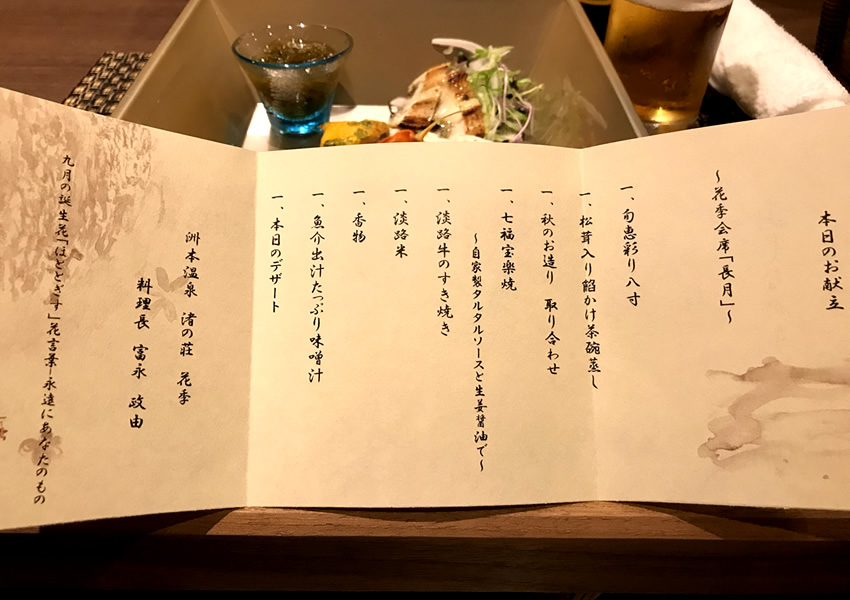 本日のお献立
～花季会席「長月」～
一、旬恵彩り八寸
一、松茸入り餡かけ茶碗蒸し
一、秋のお造り　取り合わせ
一、七福宝楽焼
～自家製タルタルソースと生姜醤油で～
一、淡路牛のすき焼き
一、淡路米
一、香物
一、魚介出汁たっぷり味噌汁
一、本日のデザート
洲本温泉　渚の荘　花季
料理長　富永　政由
九月の誕生花「ほととぎす」花言葉－永遠にあなたのもの